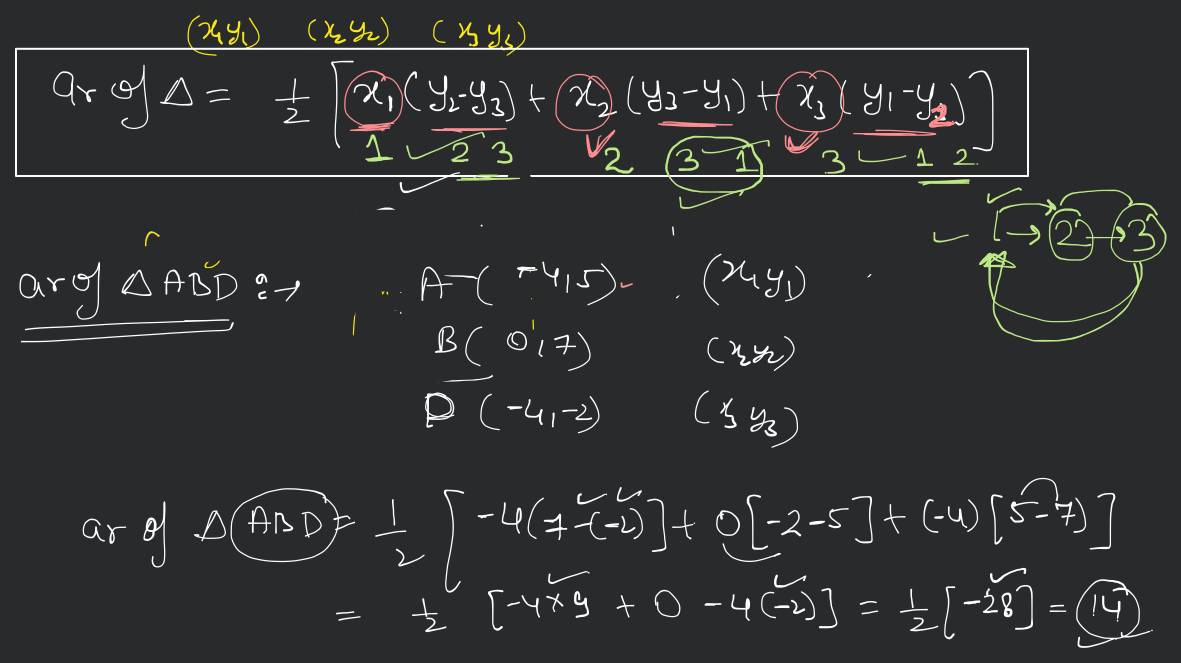 (x₁y₁) (x₂y₂) (x₃y₃)
ar of Δ = 1/2 [x₁(y₂-y₃) + x₂(y₃-y₁) + x₃(y₁-y₂)]
1 2 3 2 3 1 3 1 2
2 → 3
ar of Δ ABD :→ A-(-4,5) (x₁y₁)
B(0,7) (x₂y₂)
D(-4,-2) (x₃y₃)
ar of Δ ABD = 1/2 [-4(7-(-2)] + 0[-2-5] + (-4)[5-7)]
= 1/2 [-4×9 + 0 -4(-2)] = 1/2 [-28] = 14